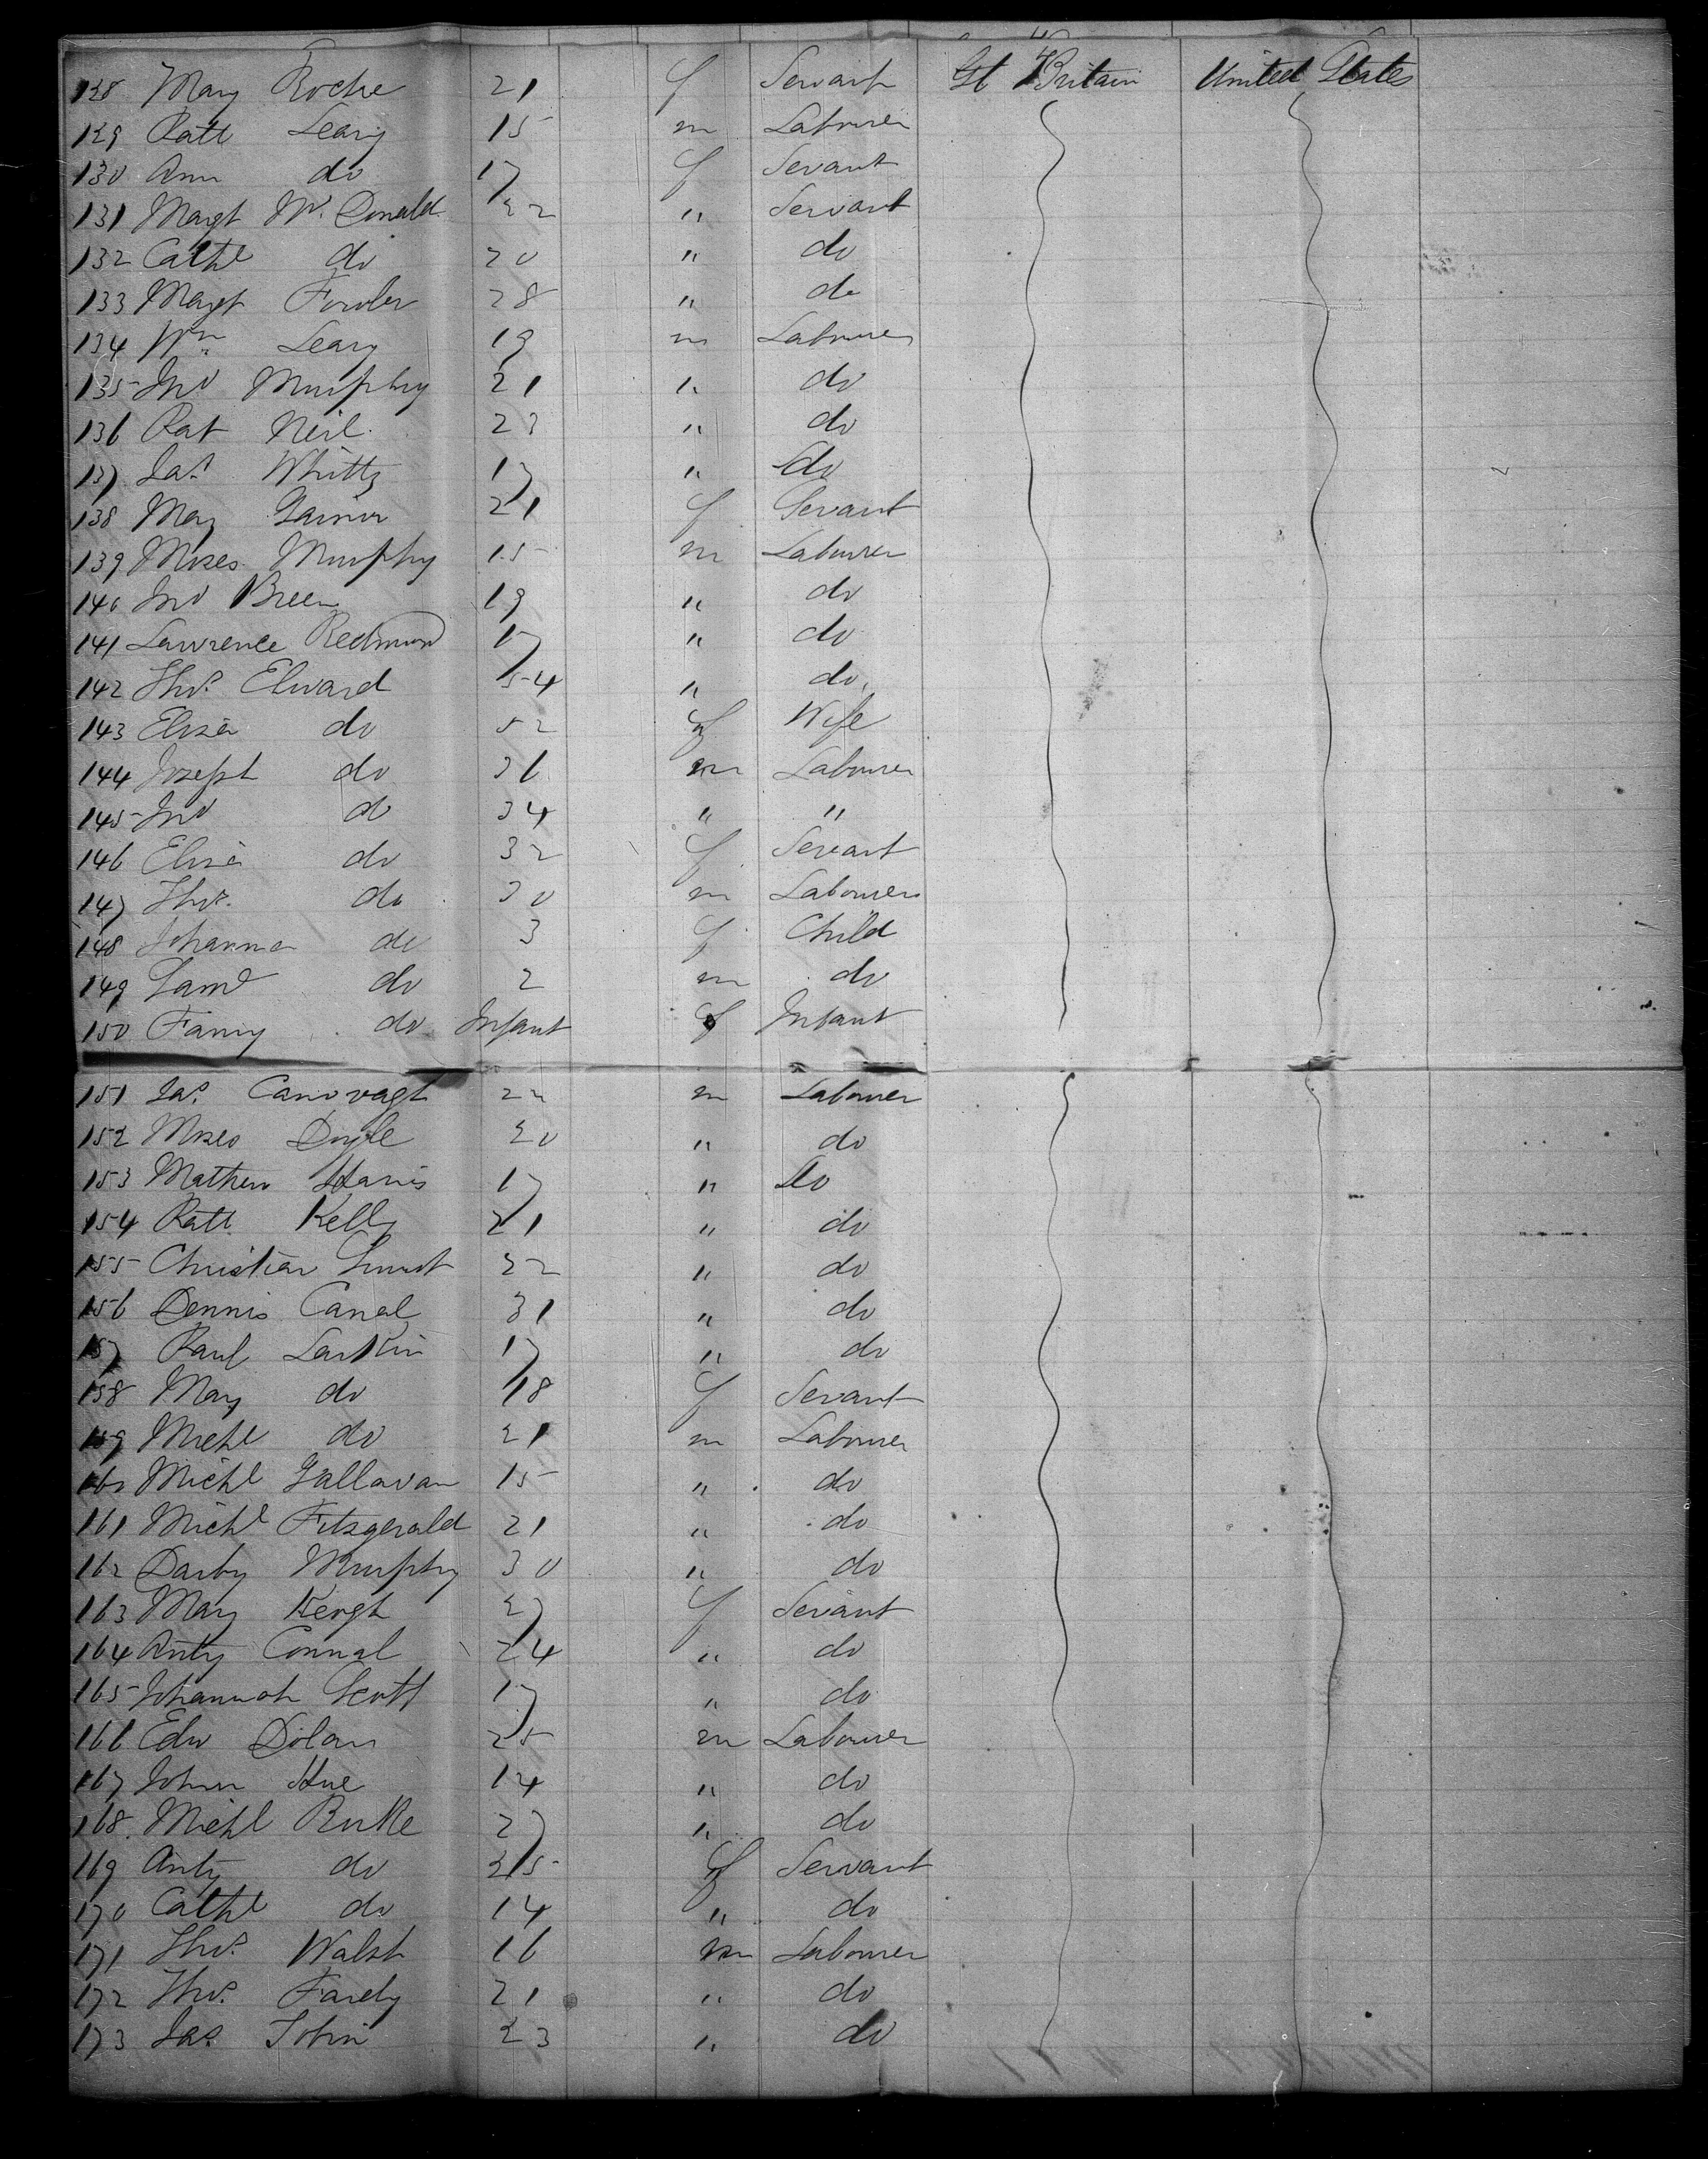 128 Mary Roche 21 f Servant Gt Britain United States
129 Patt Leary 15 m Labourer
130 Ann do 17 f Servant
131 Margt Mc Donald 22 " Servant
132 Cathe do 20 " do
133 Margt Fowler 28 " do
134 Wm Leary 19 m Labourer
135 Jno Murphy 21 " do
136 Pat Neil 23 " do
137 Jas Whitty 17 " do
138 Mary Gainor 21 f Servant
139 Moses Murphy 15 m Labourer
140 Jno Breen 19 " do
141 Lawrence Redmond 17 " do
142 Thos Elward 54 " do
143 Eliza do 52 f Wife
144 Joseph do 36 m Labourer
145 Jno do 34 " "
146 Eliza do 32 f Servant
147 Thos do 30 m Labourer
148 Johanna do 3 f Child
149 Saml do 2 m do
150 Fanny do Infant f Infant
151 Jas Canovagh 22 m Labourer
152 Moses Doyle 20 " do
153 Mathew Harris 17 " Do
154 Patt Kelly 21 " do
155 Christian 22 " do
156 Dennis Canal 31 " do
157 Paul Larkin 17 " do
158 Mary do 18 f Servant
159 Michl do 21 m Labourer
160 Michl Gallavan 15 " do
161 Michl Fitzgerald 21 " do
162 Darby Murphy 30 " do
163 Mary Keogh 27 f Servant
164 Anty Connal 24 " do
165 Johannah Scott 17 " do
166 Edw Dolan 25 m Labourer
167 John Hue 14 " do
168 Michl Burke 27 " do
169 Anty do 25 f Servant
170 Cathe do 14 " do
171 Thos Walsh 16 m Labourer
172 Thos Fardy 21 " do
173 Jas Tobin 23 " do